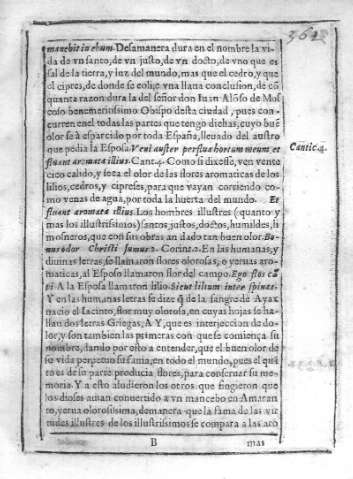 manebit in ebum. Desamanera dura en el nombre la vi-
da de vn santo, de vn justo, de vn docto, de vno que es
sal de la tierra, y luz del mundo, mas que el cedro, y que
el cipres, de donde se colige vna llana conclusion, de cō
quanta razon dura la del señor don Iuan Alōso de Mos
coso benemeritissimo Obispo desta ciudad, pues con-
curren en el todas las partes que tengo dichas, cuyo buē
olor se à esparcido por toda España, lleuado del austro
que pedia la Esposa. Veni auster perflua hortum meum et
fluant aromata illius. Cant. 4. Como si dixesse, ven vente
cico calido, y toca el olor de las flores aromaticas de los
lilios, cedros, y cipreses, para que vayan corriendo co-
mo venas de agua, por toda la huerta del mundo. Et
fluant aromata illius. Los hombres illustres (quanto y
mas los illustrissimos) santos, justos, doctos, humildes, li
mosneros, que con sus obras an dado tan buen olor. Bo-
nus odor Christi sumus. Corint. 2. En las humanas, y
diuinas letras, se llamaron flores olorosas, o yeruas aro-
maticas, al Esposo llamaron flor del campo. Ego flos cā
pi A la Esposa llamaron lilio. Sicut lilium inter spinas.
Y en las humanas letras se dize q̄ de la sangre de Ayax
nacio el Iacinto, flor muy olorosa, en cuyas hojas se ha-
llan dos letras Griegas, A Y, que es interjeccion de do-
lor, y son tambien las primeras con que se comiença su
nombre, dando por esto a entender, que el buen olor de
su vida perpetuo su fama, en todo el mundo, pues el quā
to es de su parte producia flores, para conseruar su me-
moria. Y a esto aludieron los otros que fingieron que
los dioses auian conuertido a vn mancebo en Amaran
to, yerua olorosissima, de manera que la fama de las vir
tudes illustres de los illustrissimos se compara a las aro
B mas
Cantic. 4.